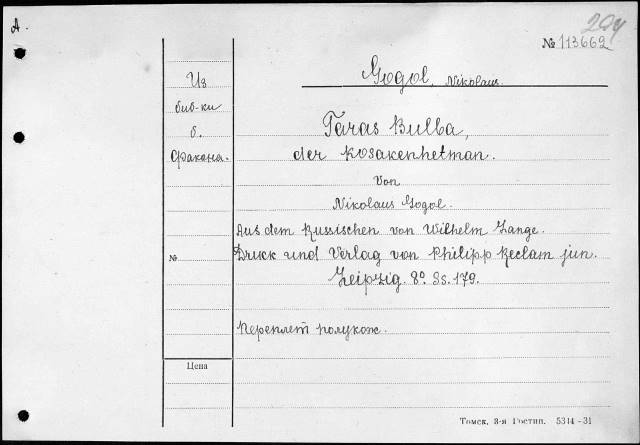 А.
204
№ 113662
Gogol, Nikolaus.
Из
биб-ки
б.
Фракена.
Taras Bulba,
der Kosakenhetman.
Von
Nikolaus Gogol.
Aus dem Russischen von Wilhelm Lange.
№
Druck und Verlag von Philipp Reclam jun.
Leipzig. 8º. Ss. 179.
Переплет полукож.
Цена
Томск, 3-я Гостип. 5314-31